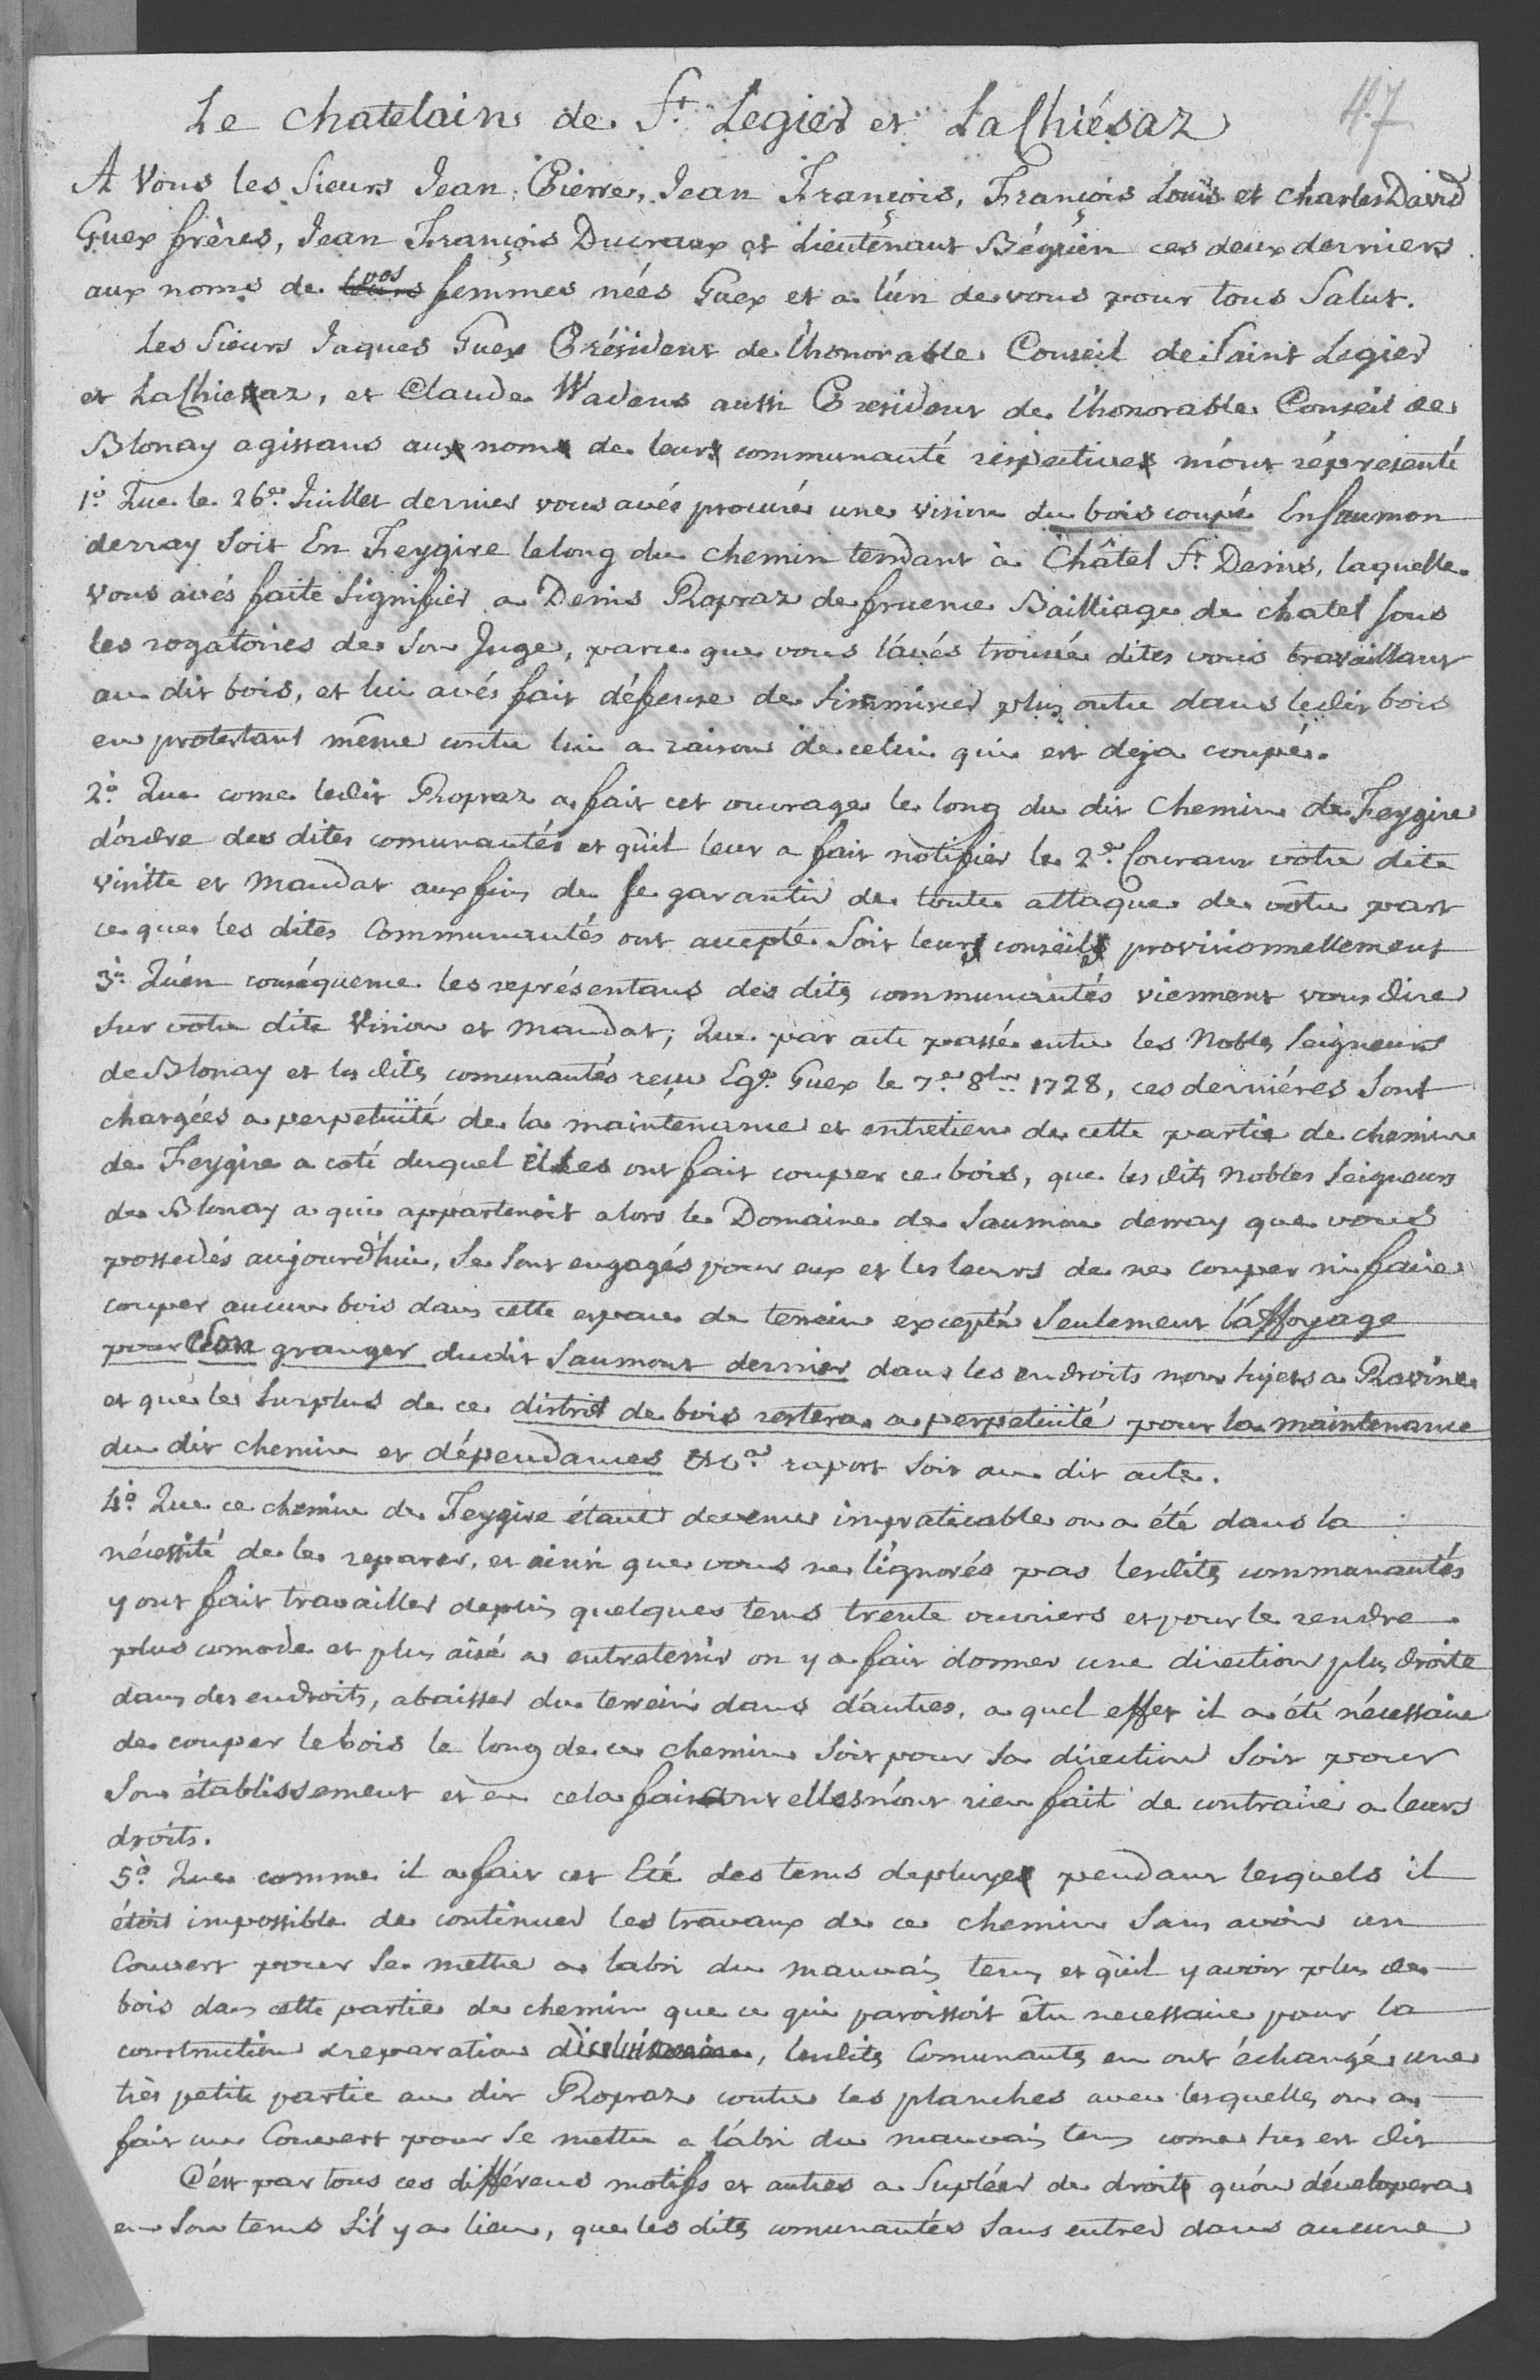 Le chatelain de S.t Legier et LaChiésaz
47
A Vous les Sieurs Jean Pierre, Jean François, François Louïs et charles David
Guex frères, Jean François Ducraux et Lieutenant Béguin ces deux derniers
aux noms de vos femmes nées Guex et a lún de vous pour tous Salut.
Les Sieurs Jaques Guex Président de l'honorable Conseil de Saint Legier
et LaChiesaz, et Claude Wadens aussi President de l'honorable Conseil de
Blonay agissans aux noms de leurs communauté respectives m'ont réprésenté
1.° Que le 26.e Juillet dernier vous avés procuré une vision du bois coupé En Saumon
derray Soit En Feygire le long du chemin tendant à Châtel S.t Denis, laquelle
vous avés faite Signifier a Denis Ropraz de fruence Bailliage de chatel sous
les rogatoires de Son Juge, parce que vous l'avés trouvé dites vous travaillant
au dit bois, et lui avés fait défense de S'immiscer plus outre dans ledit bois
en protestant même contre lui a raison de celui qui est deja coupé.
2.° Que come ledit Ropraz a fait cet ouvrage le long du dit Chemin de Feygire
d'ordre des dites comunautés et qu'il leur a fait notifier le 2.e Courant votre dite
visitte et Mandat aux fins de se garantir de toute attaque de vôtre part
ce que les dites Communautés ont accepté Soit leurs conseils provisionnellement
3.° Qu'en conséquence les représentans des dits communautés viennent vous dire
Sur votre dite Vision et mandat; Que par acte passé entre les Nobles Seigneurs
de Blonay et les dits comunautés reçu Eg.e Guex le 7.e 8bre 1728, ces derniéres Sont
chargées a perpetuité de la maintenance et entretien de cette partie de chemin
de Feygire a coté duquel elles ont fait couper ce bois, que les dits Nobles Seigneurs
de Blonay a qui appartenoit alors le Domaine de Saumon derray que vous
possedés aujourd'hui, Se Sont engagés pour eux et les leurs de ne couper ni faire
couper aucun bois dans cette espace de terrein excepté Seulement l'affoyage
pour Son granger dudit Saumont dernier dans les endroits non sujets a Ravine
et que le Surplus de ce district de bois restera a perpetuité pour la maintenance
du dit chemin et dépendances &c.a raport Soit au dit acte.
4.° Que ce chemin de Feygire étant devenu impraticable on a été dans la
nécessité de le reparer, et ainsi que vous ne l'ignorés pas lesdits communautés
y ont fait travailler depuis quelques tems trente ouvriers et pour le rendre
plus comode et plus aisé a entretenir on y a fait donner une direction plus droite
dans des endroits, abaisser du terrein dans d'autres, a quel effet il a été nécessaire
de couper le bois le long de ce chemin Soit pour Sa direction Soit pour
Son établissement et en cela faisant elles n'ont rien fait de contraire a leurs
droits.
5.° Que comme il a fait cet Eté des tems de pluye pendant lesquels il
étoit impossible de continuer les travaux de ce chemin Sans avoir un
Couvert pour Se mettre a labri du mauvais tems et qu'il y avoit plus de
bois dans cette partie de chemin que ce qui paroissoit être necessaire pour la
construction & reparation, lesdits Comunautés en ont échangé une
très petite partie au dit Ropraz contre les planches avec lesquelles on a
fait un Couvert pour Se mettre a l'abri du mauvais tems come sus est dit
C'est par tous ces différens motifs et autres a Supléer de droit qu'on dévelopera
en Son tems S'il y a lieu, que les dits comunautés Sans entrer dans aucune